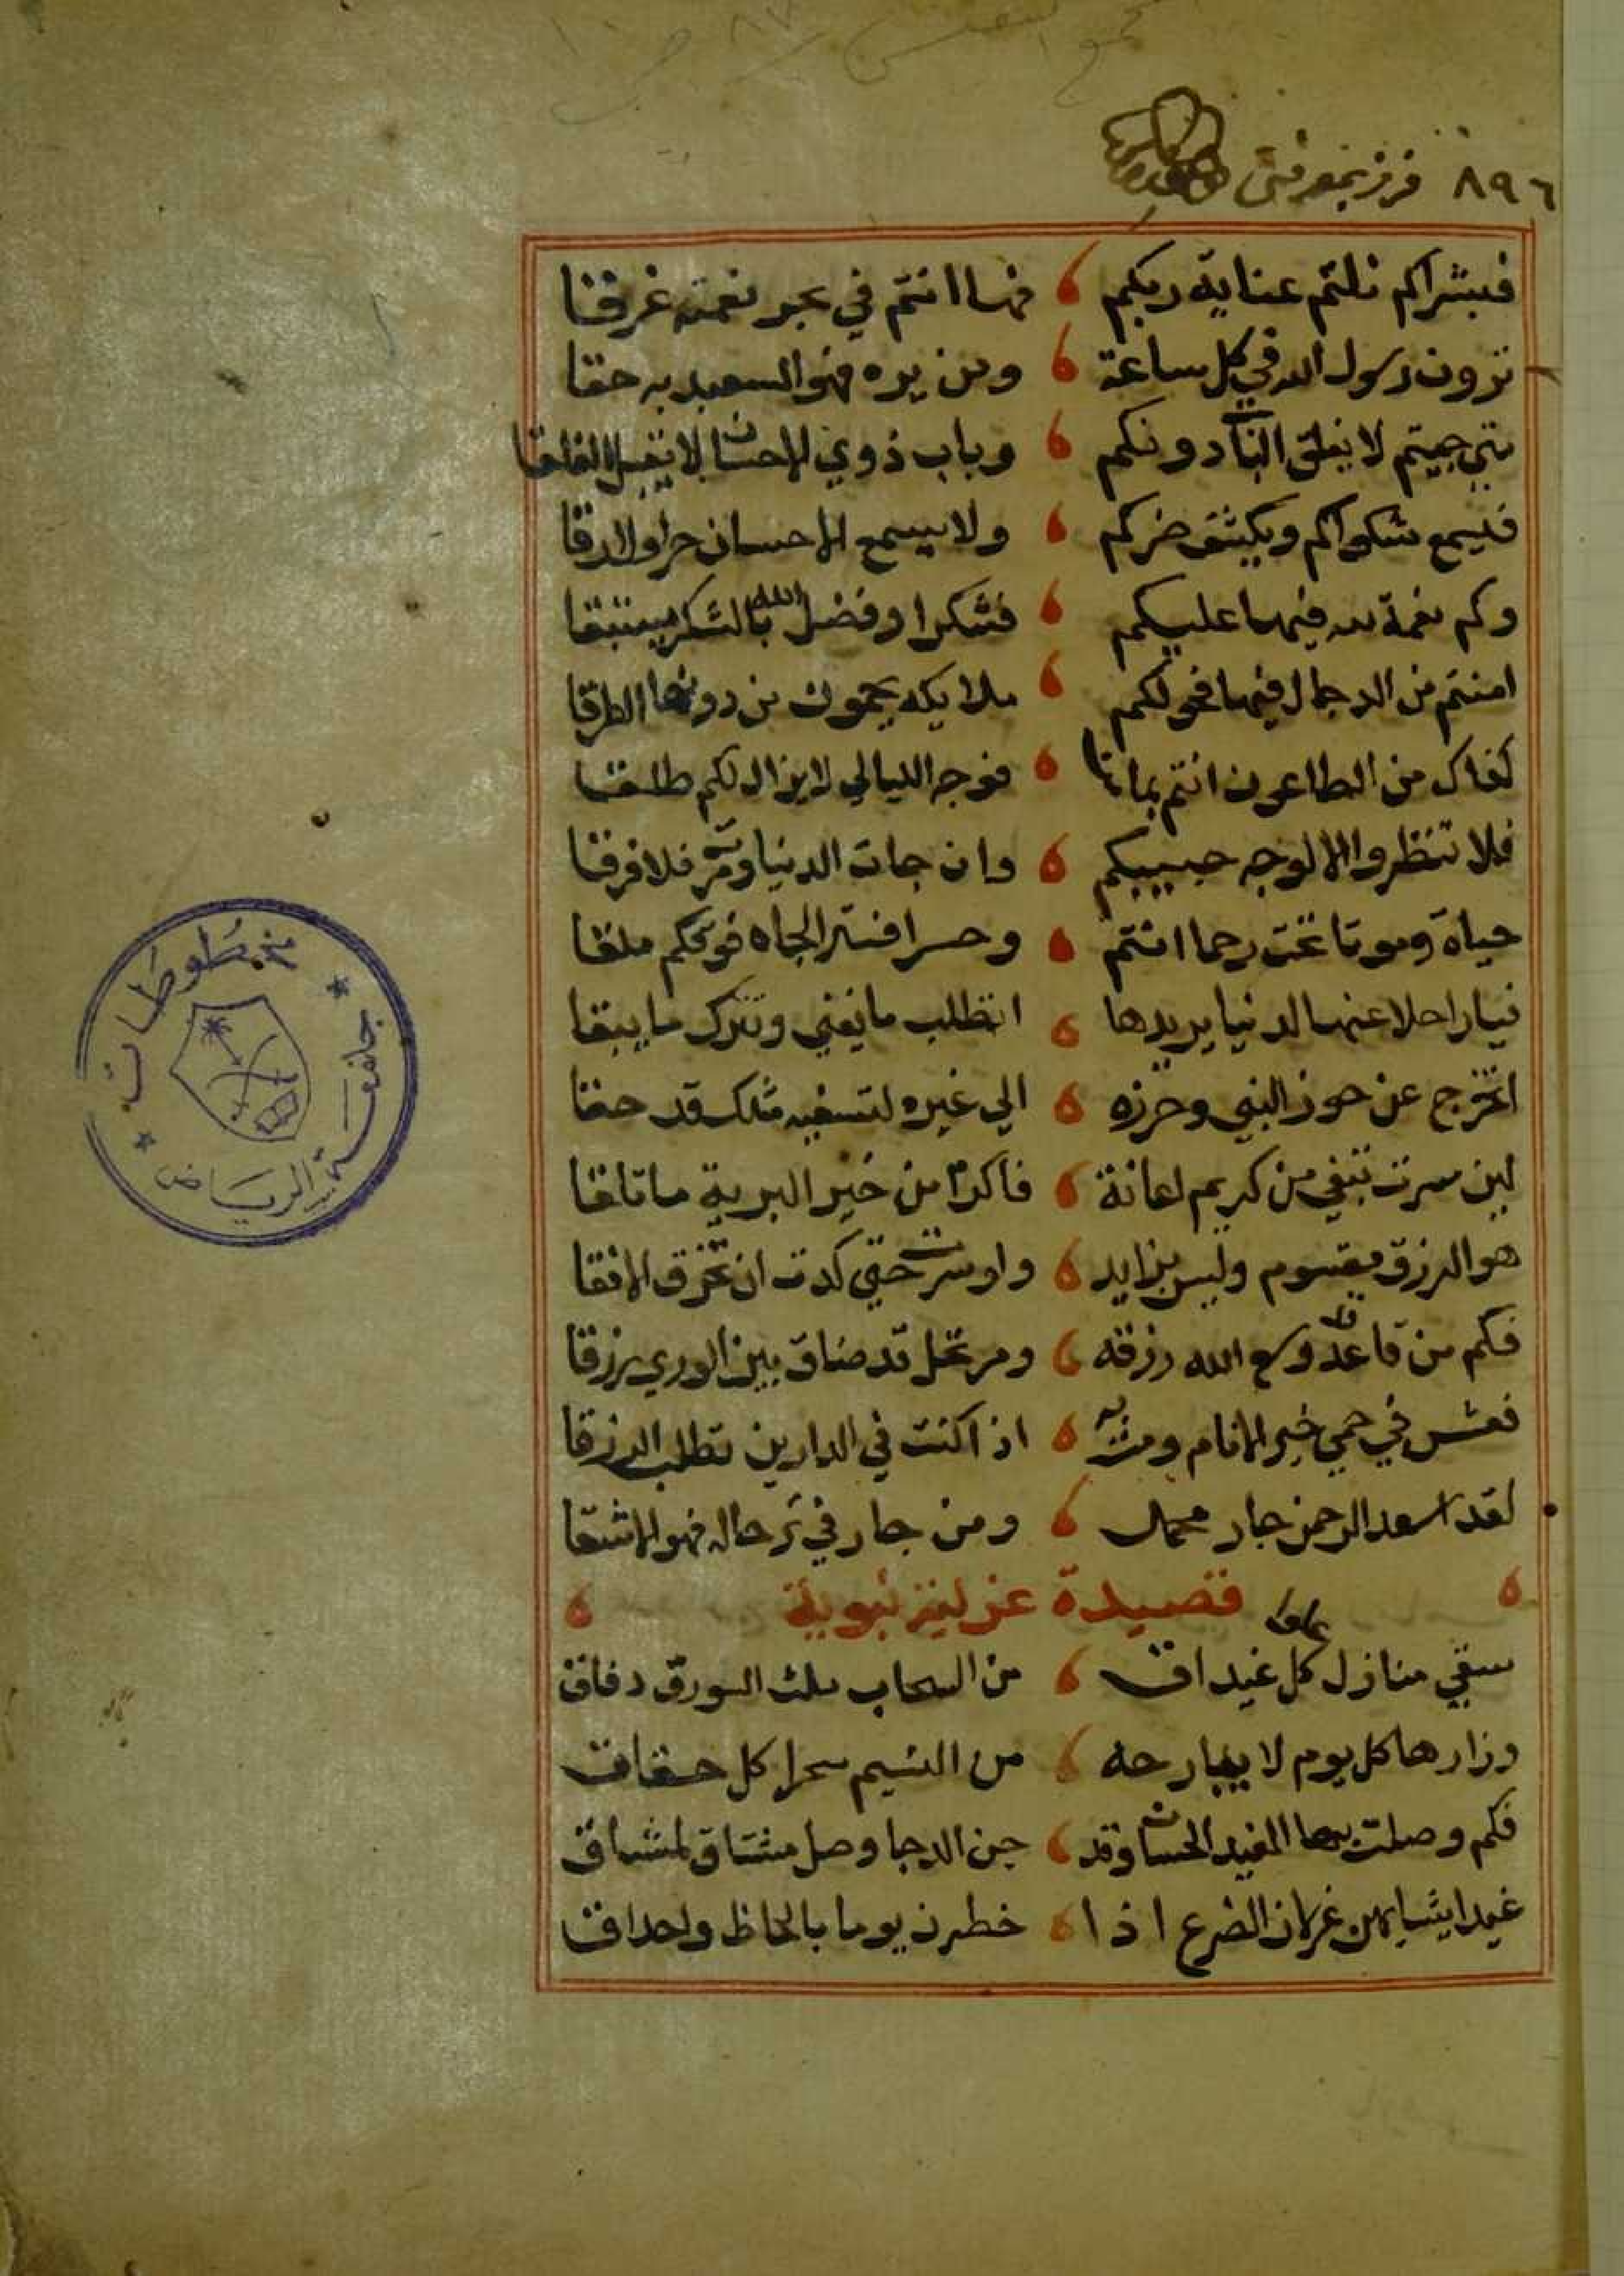 ٨٩٦
فبشراكم نلتم عناية ربكم فها انتم في بحر نعمته غرقا
ترون رسول الله في كل ساعة ومن يره فهو السعيد به حقا
متى جيتم لا يغلق الباب دونكم وباب ذوي الاحسان لا يقبل الغلقا
فيسمع شكواكم ويكشف ضركم ولا يسمع الاحسان حرا ولا رقا
وكم نعمة لله فيها عليكم فشكرا وفضل الله بالشكر يستبقا
امنتم من الدجال فيها فحولكم ملايكه يحمون من دونها الطرقا
كفاك من الطاعون انتم بمامن فوجه الليالي لا يزال لكم طلقا
فلا تنظروا الا لوجه حبيبكم وان جات الدنيا ومرت فلا فرقا
حياة وموتا تحت رحما انتم وحسرا فستر الجاه فوقكم ملقا
فيا راحلا عنها لدنيا يريدها اتطلب ما يفني وتترك ما يبقا
اتخرج عن حوز النبي وحرزه الي غيره لتسفيه مثلك قد حقا
لين سرت تبغي من كريم اعانة فاكرم من خير البرية ما تلقا
هو الرزق مقسوم وليس بزايد ولو سرت حتي كدت ان تخرق الافقا
فكم من قاعد قد وسع الله رزقه ومرتحل قد ضاق بين الوري رزقا
فعش في حمي خير الانام ومت به اذا كنت في الدارين تطلب الرزقا
لقد اسعد الرحمن جار محمد ومن جار في ترحاله فهو الاشقا
قصيدة نبوية
سقي منازل كل غيداق من السحاب ملث الورق دفاق
وزارها كل يوم لا يبارحه من النسيم سحرا كل خفاق
فكم وصلت بها الغيد الحسان وقد جن الدجا وصل مشتاق لمشتاق
غيدا يشبابهن غزلان الضرع اذا خطرن يوما بالحاظ واحداق
مخطوطات
جامعة الرياض